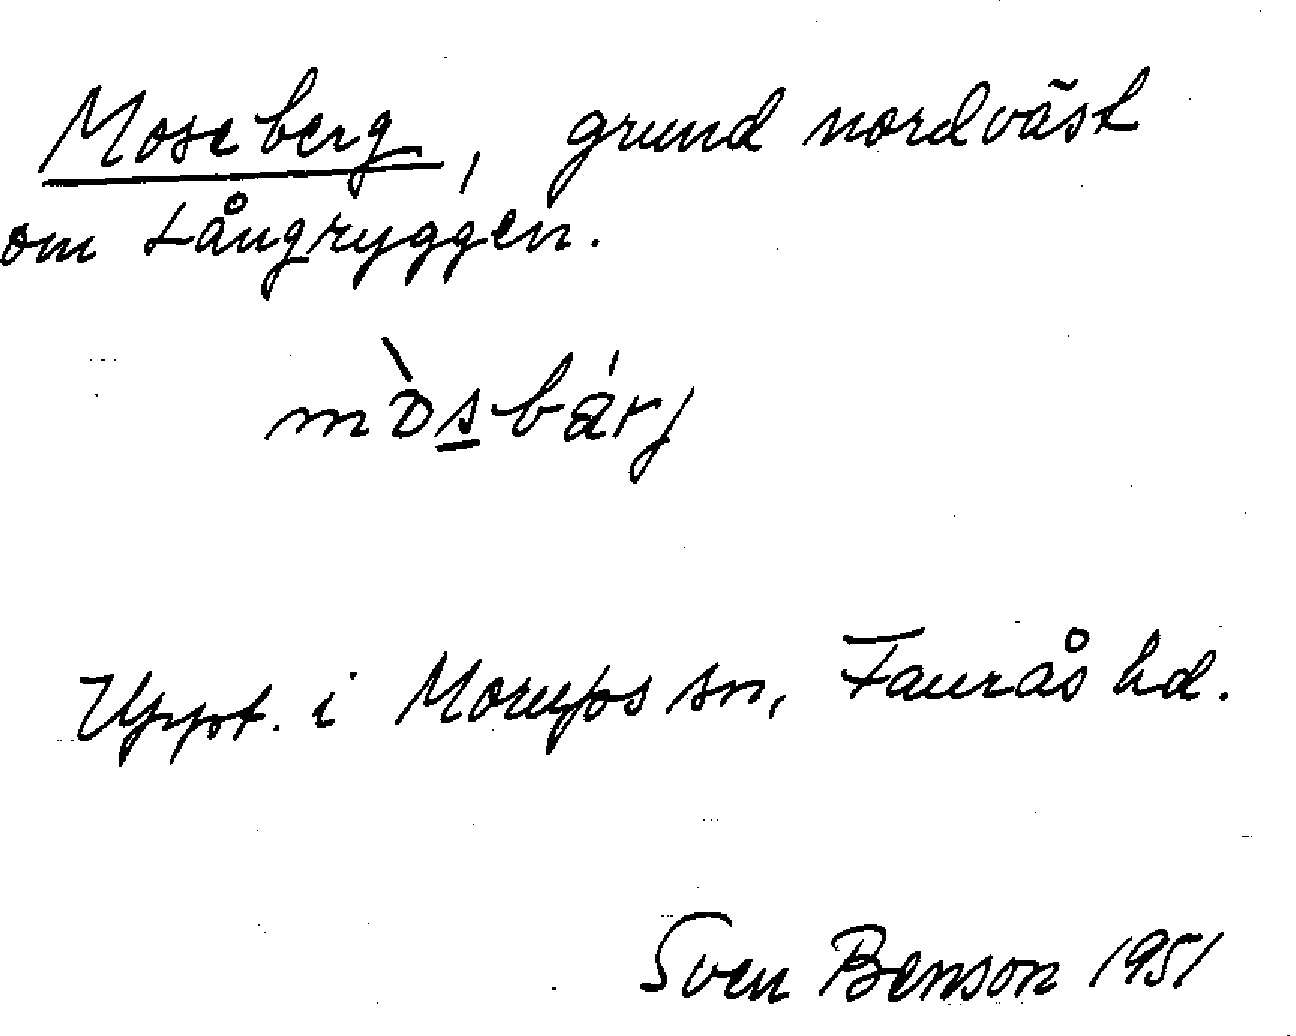 Moseberg, grund nordväst
om Långryggen.
mòsbárj
Uppt. i Morups sn, Faurås hd.
Sven Benson 1951